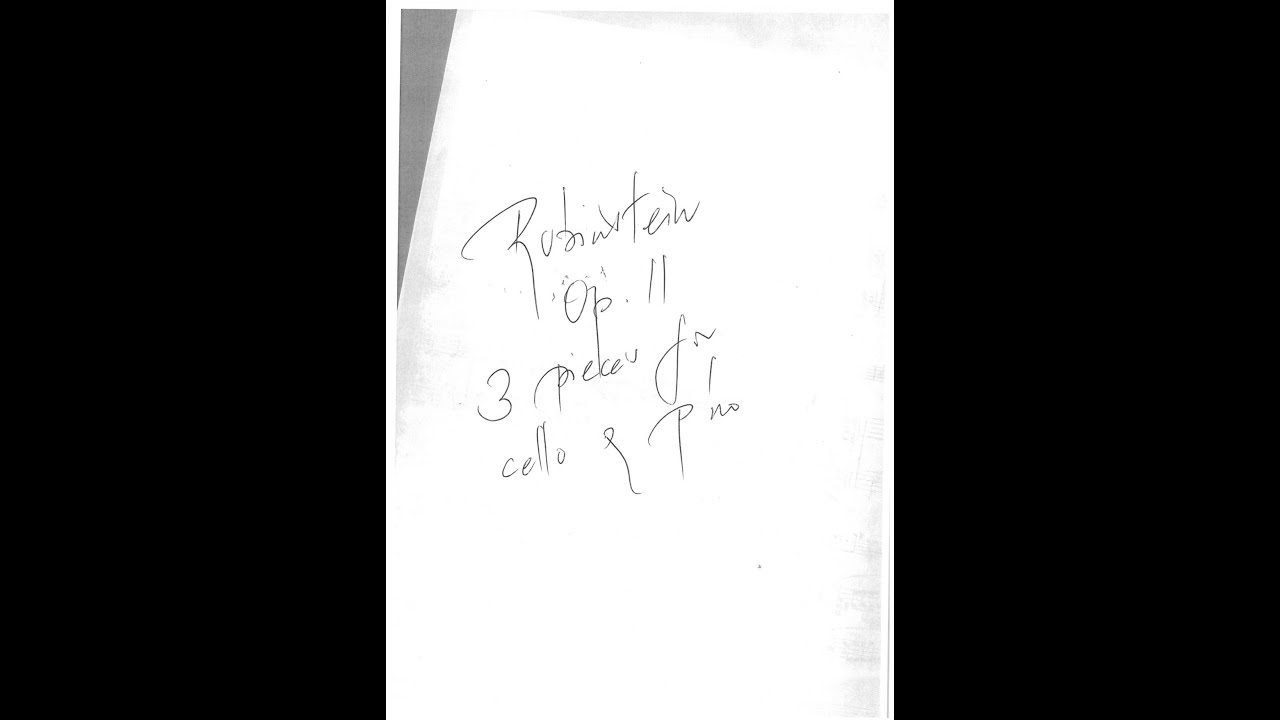 Rubinstein
Op. 11
3 pieces for
cello & pno